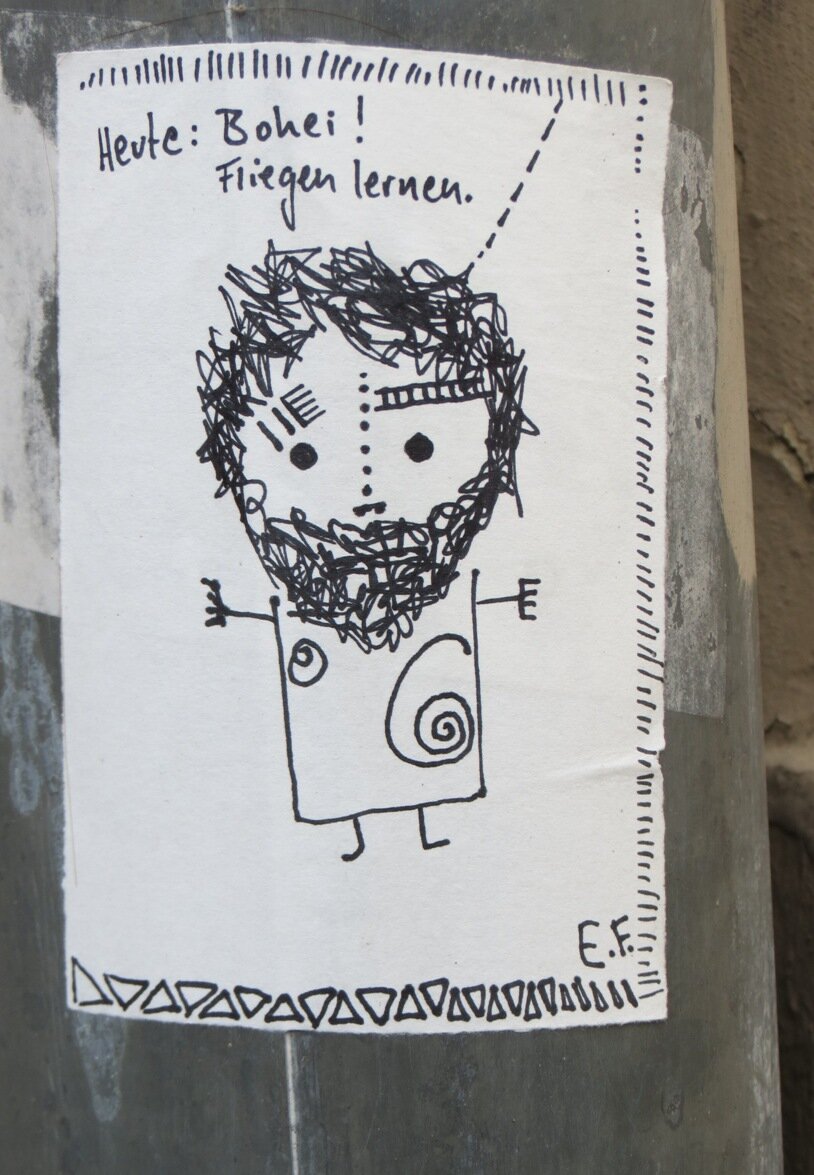 Heute: Bohei!
Fliegen lernen.
E.F.